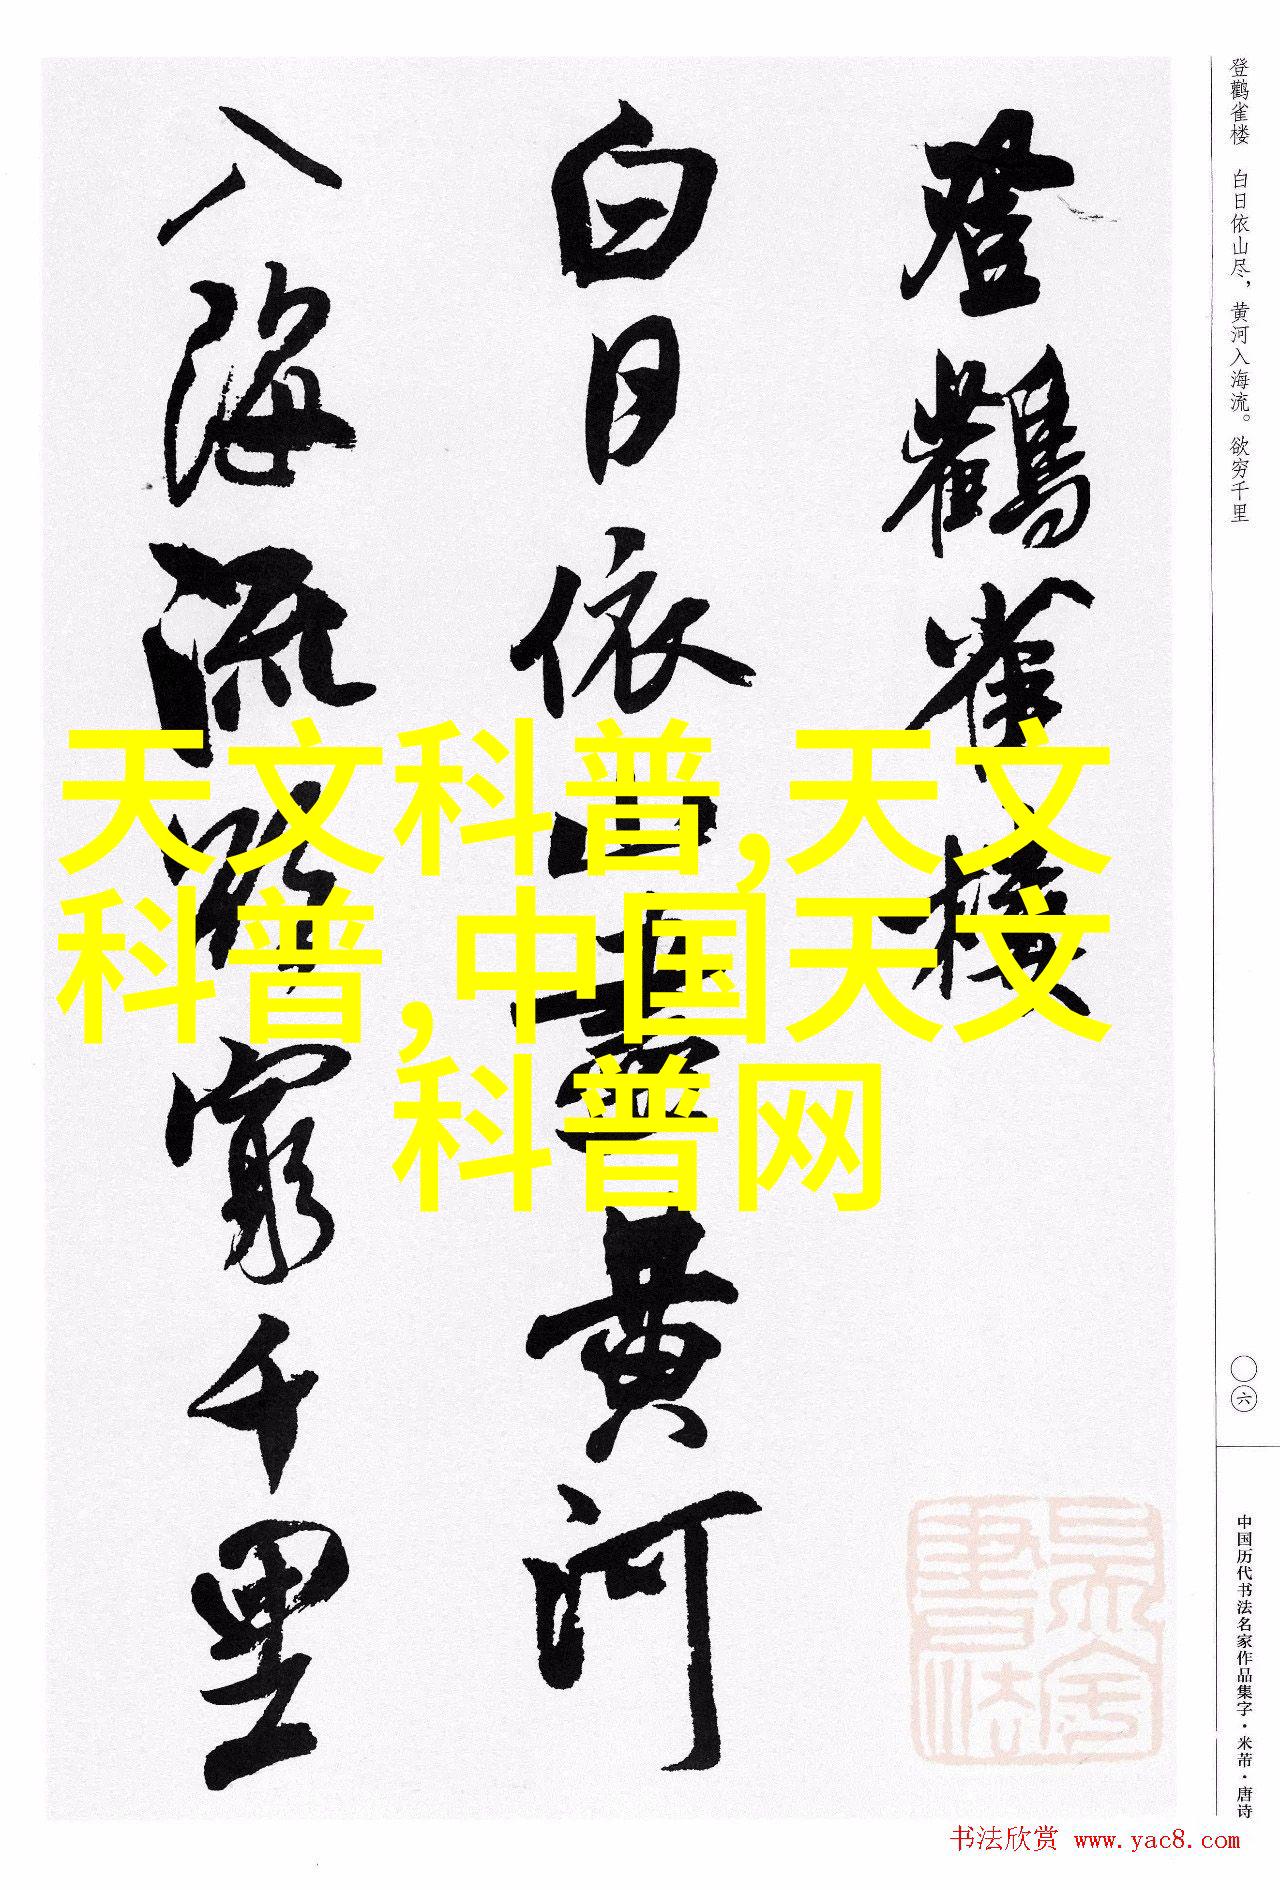 登鹳雀楼 白日依山尽，黄河入海流。欲穷千里
登鸛雀樓
白日依山盡黄河
入海流欲窮千里
天文科普,天文
科普,中国天文
科普网
〇六
中国历代书法名家作品集字·米芾·唐诗
书法欣赏 www.yac8.com